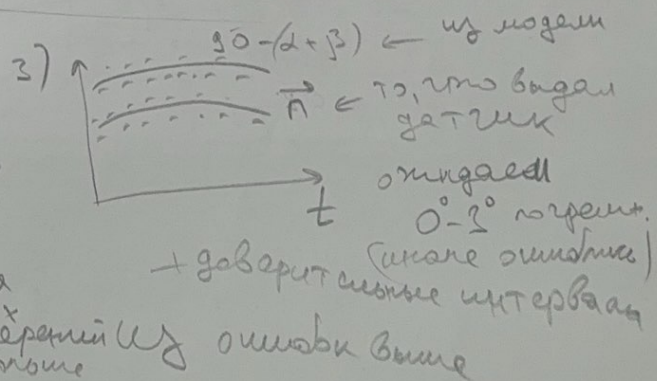 3) 90-(α+β) ← из модели
n ← то, что выдал
датчик
ожидаем
t 0°-3° погрешн.
(иначе ошибки)
+ доверительные интервалы
из ошибки выше